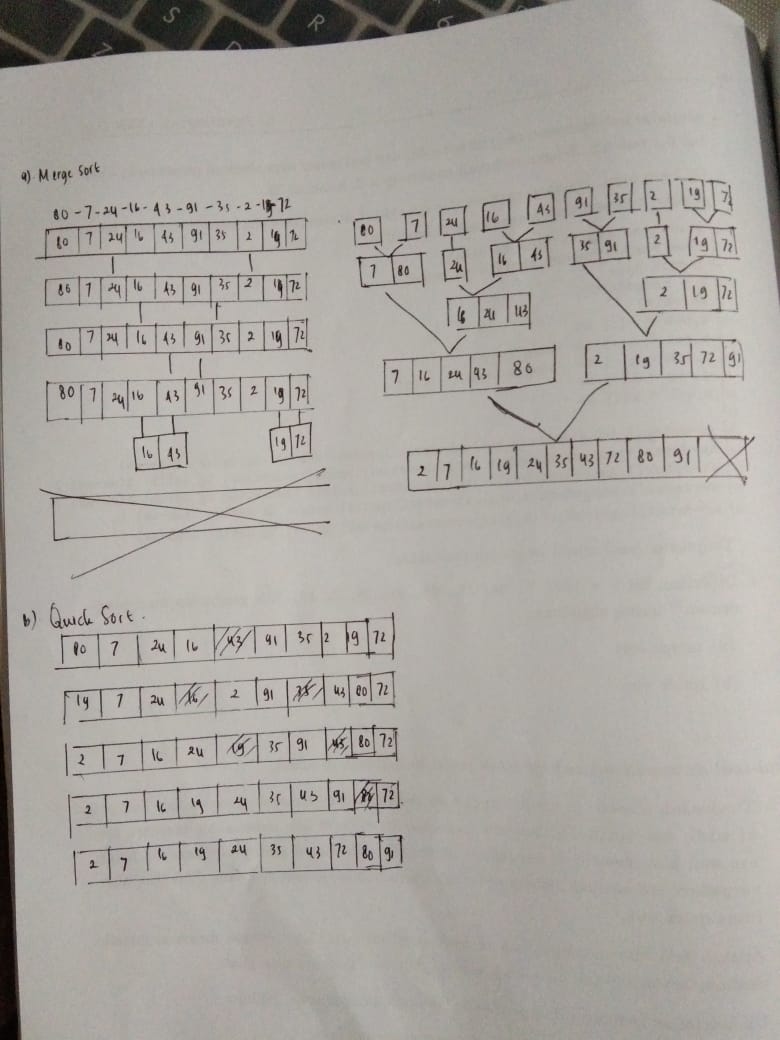 S
R
a). Merge Sort
80 - 7 - 24 - 16 - 43 - 91 - 35 - 2 - 19 - 72
80 7 24 16 43 91 35 2 19 72
80 7 24 16 43 91 35 2 19 72
80 7 24 16 43 91 35 2 19 72
80 7 24 16 43 91 35 2 19 72
16 43 19 72
80 7 24 16 43 91 35 2 19 7
7 80 24 16 43 35 91 2 19 72
16 24 43 2 19 72
7 16 24 43 80 2 19 35 72 91
2 7 16 19 24 35 43 72 80 91
b) Quick Sort.
80 7 24 16 43 91 35 2 19 72
19 7 24 16 2 91 35 43 80 72
2 7 16 24 19 35 91 43 80 72
2 7 16 19 24 35 43 91 80 72
2 7 16 19 24 35 43 72 80 91